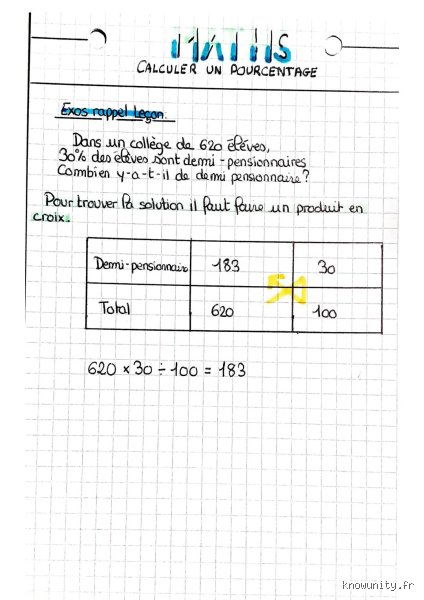 MATHS
CALCULER UN POURCENTAGE
Exos rappel leçon:
Dans un collège de 620 élèves,
30% des élèves sont demi-pensionnaires
Combien y-a-t-il de demi pensionnaire?
Pour trouver la solution il faut faire un produit en
croix.
Demi-pensionnair 183 30
Total 620 100
620 × 30 ÷ 100 = 183
knowunity.fr